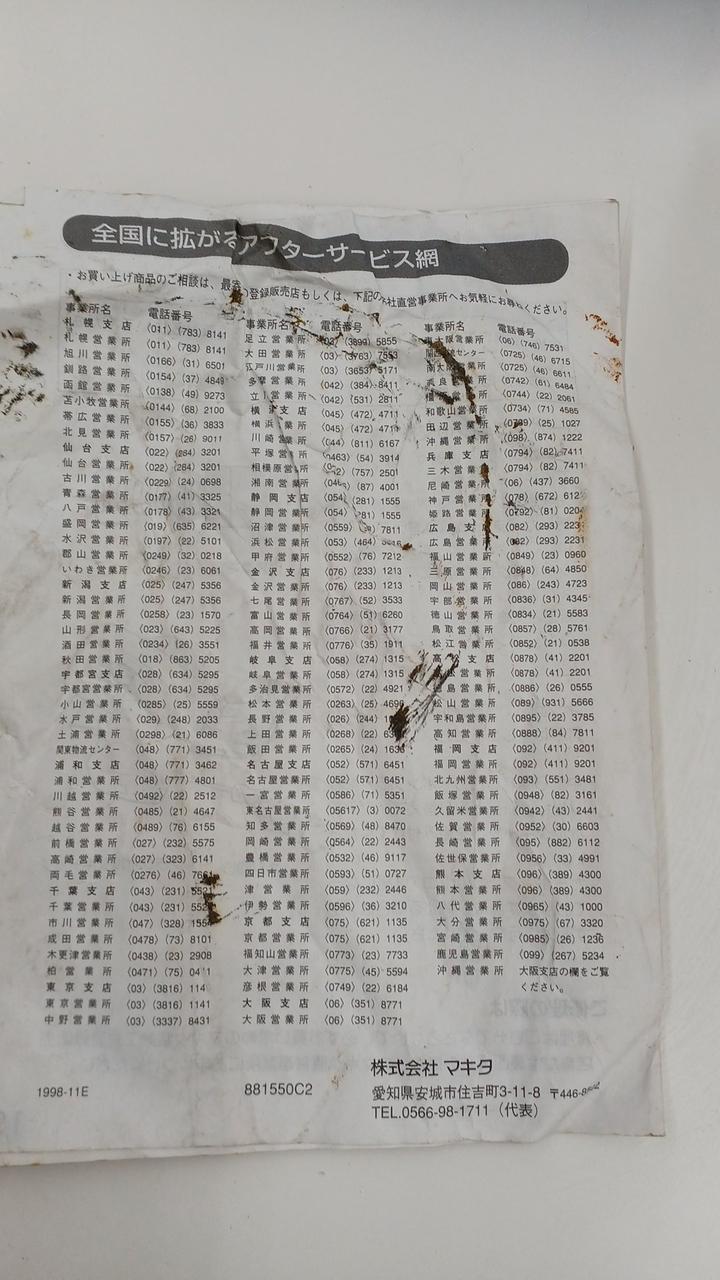 全国に拡がるアフターサービス網
・お買い上げ商品のご相談は、最寄の登録販売店もしくは、下記の本社直営事業所へお気軽にお尋ねください。
事業所名 電話番号
札幌支店 (011)(783)8141
札幌営業所 (011)(783)8141
旭川営業所 (0166)(31)6501
釧路営業所 (0154)(37)4849
函館営業所 (0138)(49)9273
苫小牧営業所 (0144)(68)2100
帯広営業所 (0155)(36)3833
北見営業所 (0157)(26)9011
仙台支店 (022)(284)3201
仙台営業所 (022)(284)3201
古川営業所 (0229)(24)0698
青森営業所 (0177)(41)3325
八戸営業所 (0178)(43)3321
盛岡営業所 (019)(635)6221
水沢営業所 (0197)(22)5101
郡山営業所 (0249)(32)0218
いわき営業所 (0246)(23)6061
新潟支店 (025)(247)5356
新潟営業所 (025)(247)5356
長岡営業所 (0258)(23)1570
山形営業所 (023)(643)5225
酒田営業所 (0234)(26)3551
秋田営業所 (018)(863)5205
宇都宮支店 (028)(634)5295
宇都宮営業所 (028)(634)5295
小山営業所 (0285)(25)5559
水戸営業所 (029)(248)2033
土浦営業所 (0298)(21)6086
関東物流センター (048)(771)3451
浦和支店 (048)(771)3462
浦和営業所 (048)(777)4801
川越営業所 (0492)(22)2512
熊谷営業所 (0485)(21)4647
越谷営業所 (0489)(76)6155
前橋営業所 (027)(232)5575
高崎営業所 (027)(323)6141
両毛営業所 (0276)(46)
千葉支店 (043)(231)
千葉営業所 (043)(231)
市川営業所 (047)(328)
成田営業所 (0478)(73)8101
木更津営業所 (0438)(23)2908
柏営業所 (0471)(75)
東京支店 (03)(3816)
東京営業所 (03)(3816)1141
中野営業所 (03)(3337)8431
事業所名 電話番号
足立営業所 (03)(3899)5855
大田営業所 (03)(3763)7553
江戸川営業所 (03)(3653)5171
多摩営業所 (042)(384)8411
立川営業所 (042)(531)2811
横浜支店 (045)(472)4711
横浜営業所 (045)(472)4711
川崎営業所 (044)(811)6167
平塚営業所 (0463)(54)3914
相模原営業所 (757)2501
湘南営業所 (87)4001
静岡支店 (281)1555
静岡営業所 (281)1555
沼津営業所 (0559) 7811
浜松営業所 (053)(464)
甲府営業所 (0552)(76)7212
金沢支店 (076)(233)1213
金沢営業所 (076)(233)1213
七尾営業所 (0767)(52)3533
富山営業所 (0764)(51)6260
高岡営業所 (0766)(21)3177
福井営業所 (0776)(35)1911
岐阜支店 (058)(274)1315
岐阜営業所 (058)(274)1315
多治見営業所 (0572)(22)4921
松本営業所 (0263)(25)
長野営業所 (026)(244)
上田営業所 (0268)(22)
飯田営業所 (0265)(24)
名古屋支店 (052)(571)6451
名古屋営業所 (052)(571)6451
一宮営業所 (0586)(71)5351
東名古屋営業所 (05617)(3)0072
知多営業所 (0569)(48)8470
岡崎営業所 (0564)(22)2443
豊橋営業所 (0532)(46)9117
四日市営業所 (0593)(51)0727
津営業所 (059)(232)2446
伊勢営業所 (0596)(36)3210
京都支店 (075)(621)1135
京都営業所 (075)(621)1135
福知山営業所 (0773)(23)7733
大津営業所 (0775)(45)5594
彦根営業所 (0749)(22)6184
大阪支店 (06)(351)8771
大阪営業所 (06)(351)8771
事業所名 電話番号
東大阪営業所 (06)(746)7531
流センター (0725)(46)6715
営業所 (0725)(46)6611
奈良営業所 (0742)(61)6484
営業所 (0744)(22)2061
和歌山営業所 (0734)(71)4585
田辺営業所 (0739)(25)1027
沖縄営業所 (098)(874)1222
兵庫支店 (0794)(82)7411
三木営業所 (0794)(82)7411
尼崎営業所 (06)(437)3660
神戸営業所 (078)(672)
姫路営業所 (0792)(81)
広島支店 (082)(293)
広島営業所 (082)(293)2231
福山営業所 (0849)(23)0960
三原営業所 (0848)(64)4850
岡山営業所 (086)(243)4723
宇部営業所 (0836)(31)4345
徳山営業所 (0834)(21)5583
鳥取営業所 (0857)(28)5761
松江営業所 (0852)(21)0538
高松支店 (0878)(41)2201
高松営業所 (0878)(41)2201
徳島営業所 (0886)(26)0555
松山営業所 (089)(931)5666
宇和島営業所 (0895)(22)3785
高知営業所 (0888)(84)7811
福岡支店 (092)(411)9201
福岡営業所 (092)(411)9201
北九州営業所 (093)(551)3481
飯塚営業所 (0948)(82)3161
久留米営業所 (0942)(43)2441
佐賀営業所 (0952)(30)6603
長崎営業所 (095)(882)6112
佐世保営業所 (0956)(33)4991
熊本支店 (096)(389)4300
熊本営業所 (096)(389)4300
八代営業所 (0965)(43)1000
大分営業所 (0975)(67)3320
宮崎営業所 (0985)(26)1236
鹿児島営業所 (099)(267)5234
沖縄営業所 大阪支店の欄をご覧
ください。
株式会社 マキタ
1998-11E 881550C2 愛知県安城市住吉町3-11-8 〒446-
TEL.0566-98-1711（代表）